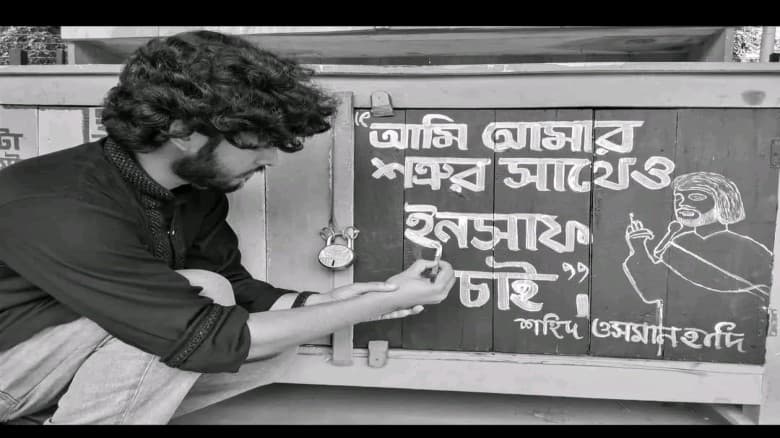 “আমি আমার
শত্রুর সাথেও
ইনসাফ
চাই”।
শহিদ ওসমান হাদি
টা